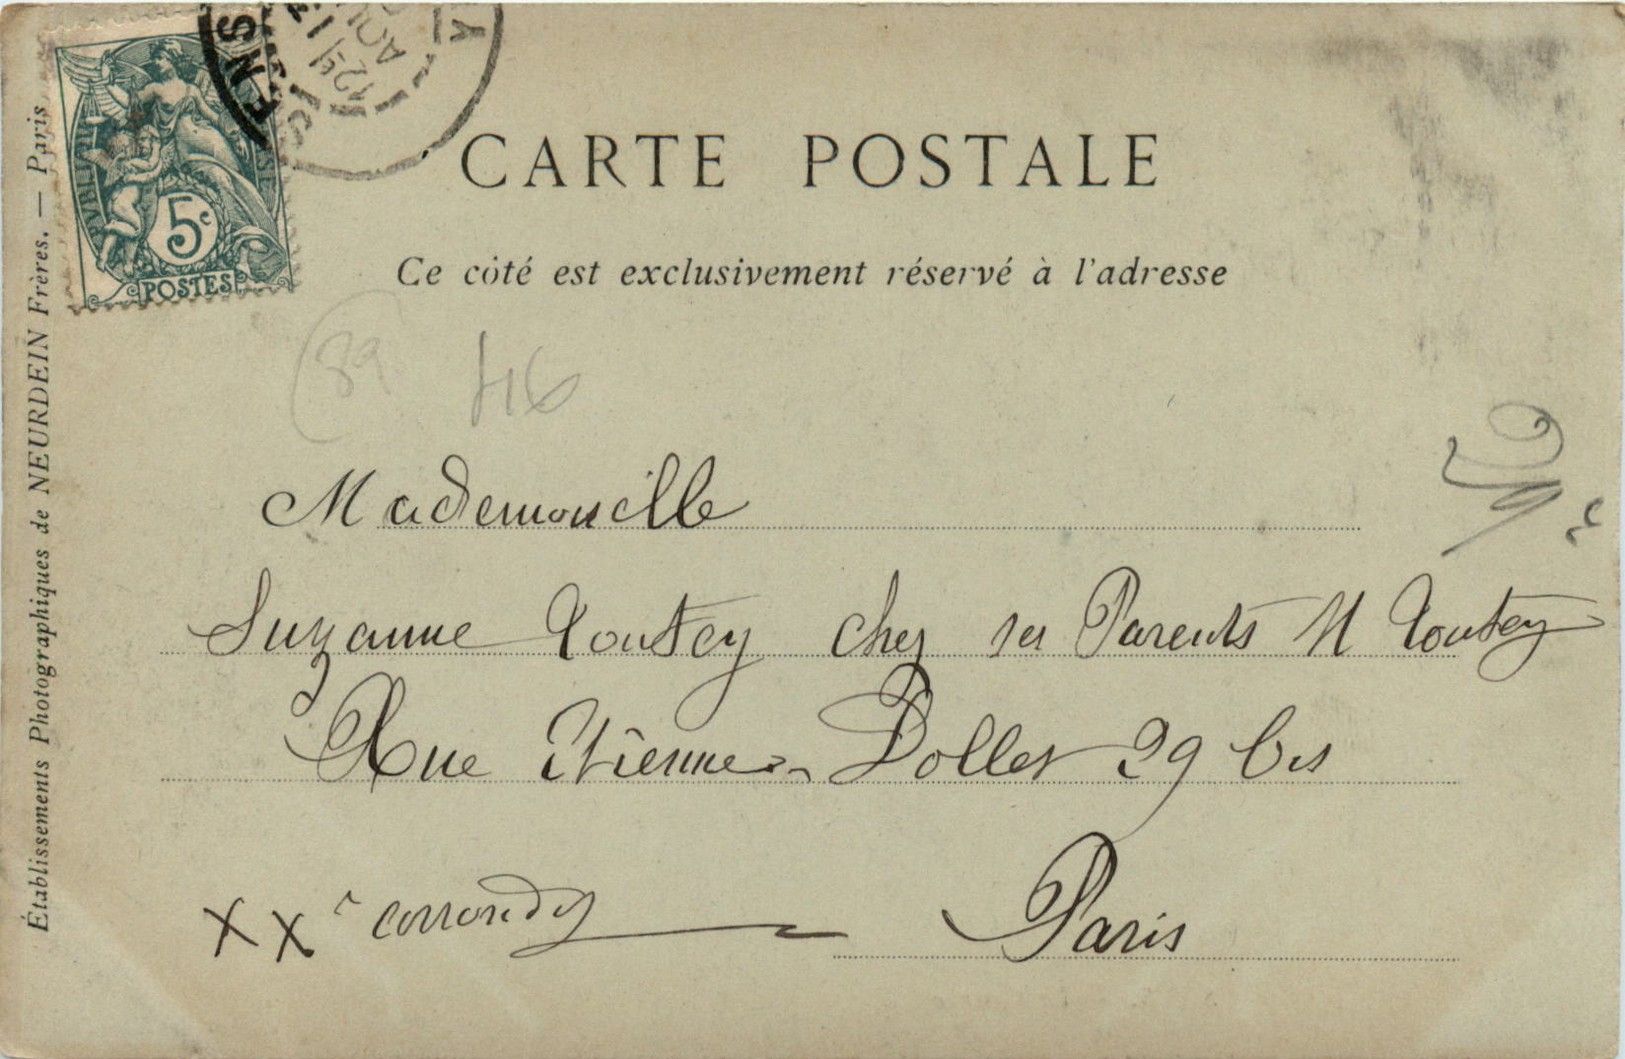 CARTE POSTALE
Ce côté est exclusivement réservé à l'adresse
5c
POSTES
ENS
Établissements Photographiques de NEURDEIN Frères. — Paris
89
416
Mademoiselle
Suzanne Toutey chez ses Parents M Toutey
Rue Etienne Dollet 29 bis
XXe
Paris